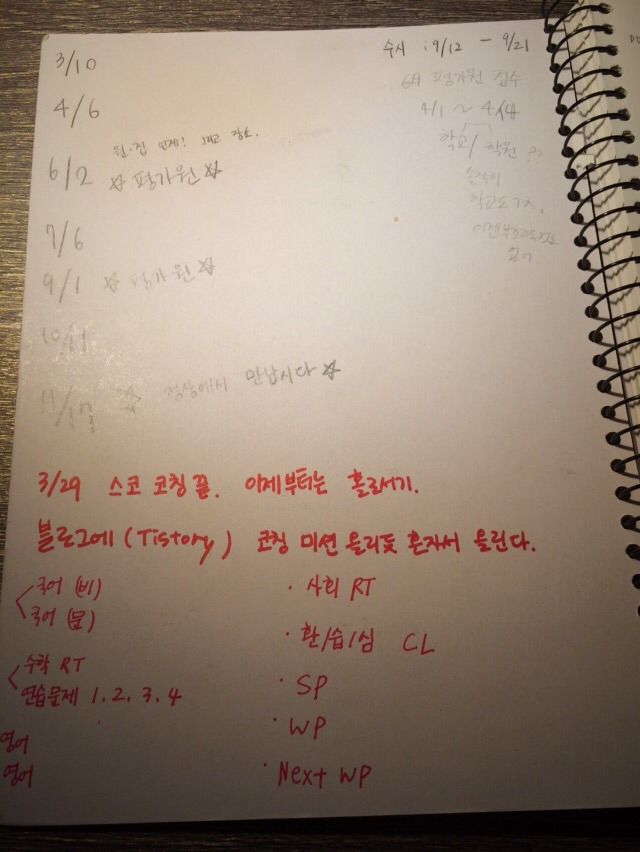 3/10
수시 : 9/12 - 9/21
6月 평가원 접수
4/6
4/1 ~ 4/14
학교/ 학원 ??
6/2 ☆ 평가원 ☆
솔직히
7/6
9/1 ☆ 평가원 ☆
10/11
정상에서 만납시다 ☆
3/29 스코 코칭 끝. 이제부터는 홀로서기.
블로그에 (Tistory) 코칭 미션 올리듯 혼자서 올린다.
국어 (비)
국어 (문)
수학 RT
연습문제 1. 2. 3. 4
영어
영어
· 사회 RT
· 환/습/심 CL
· SP
· WP
· Next WP